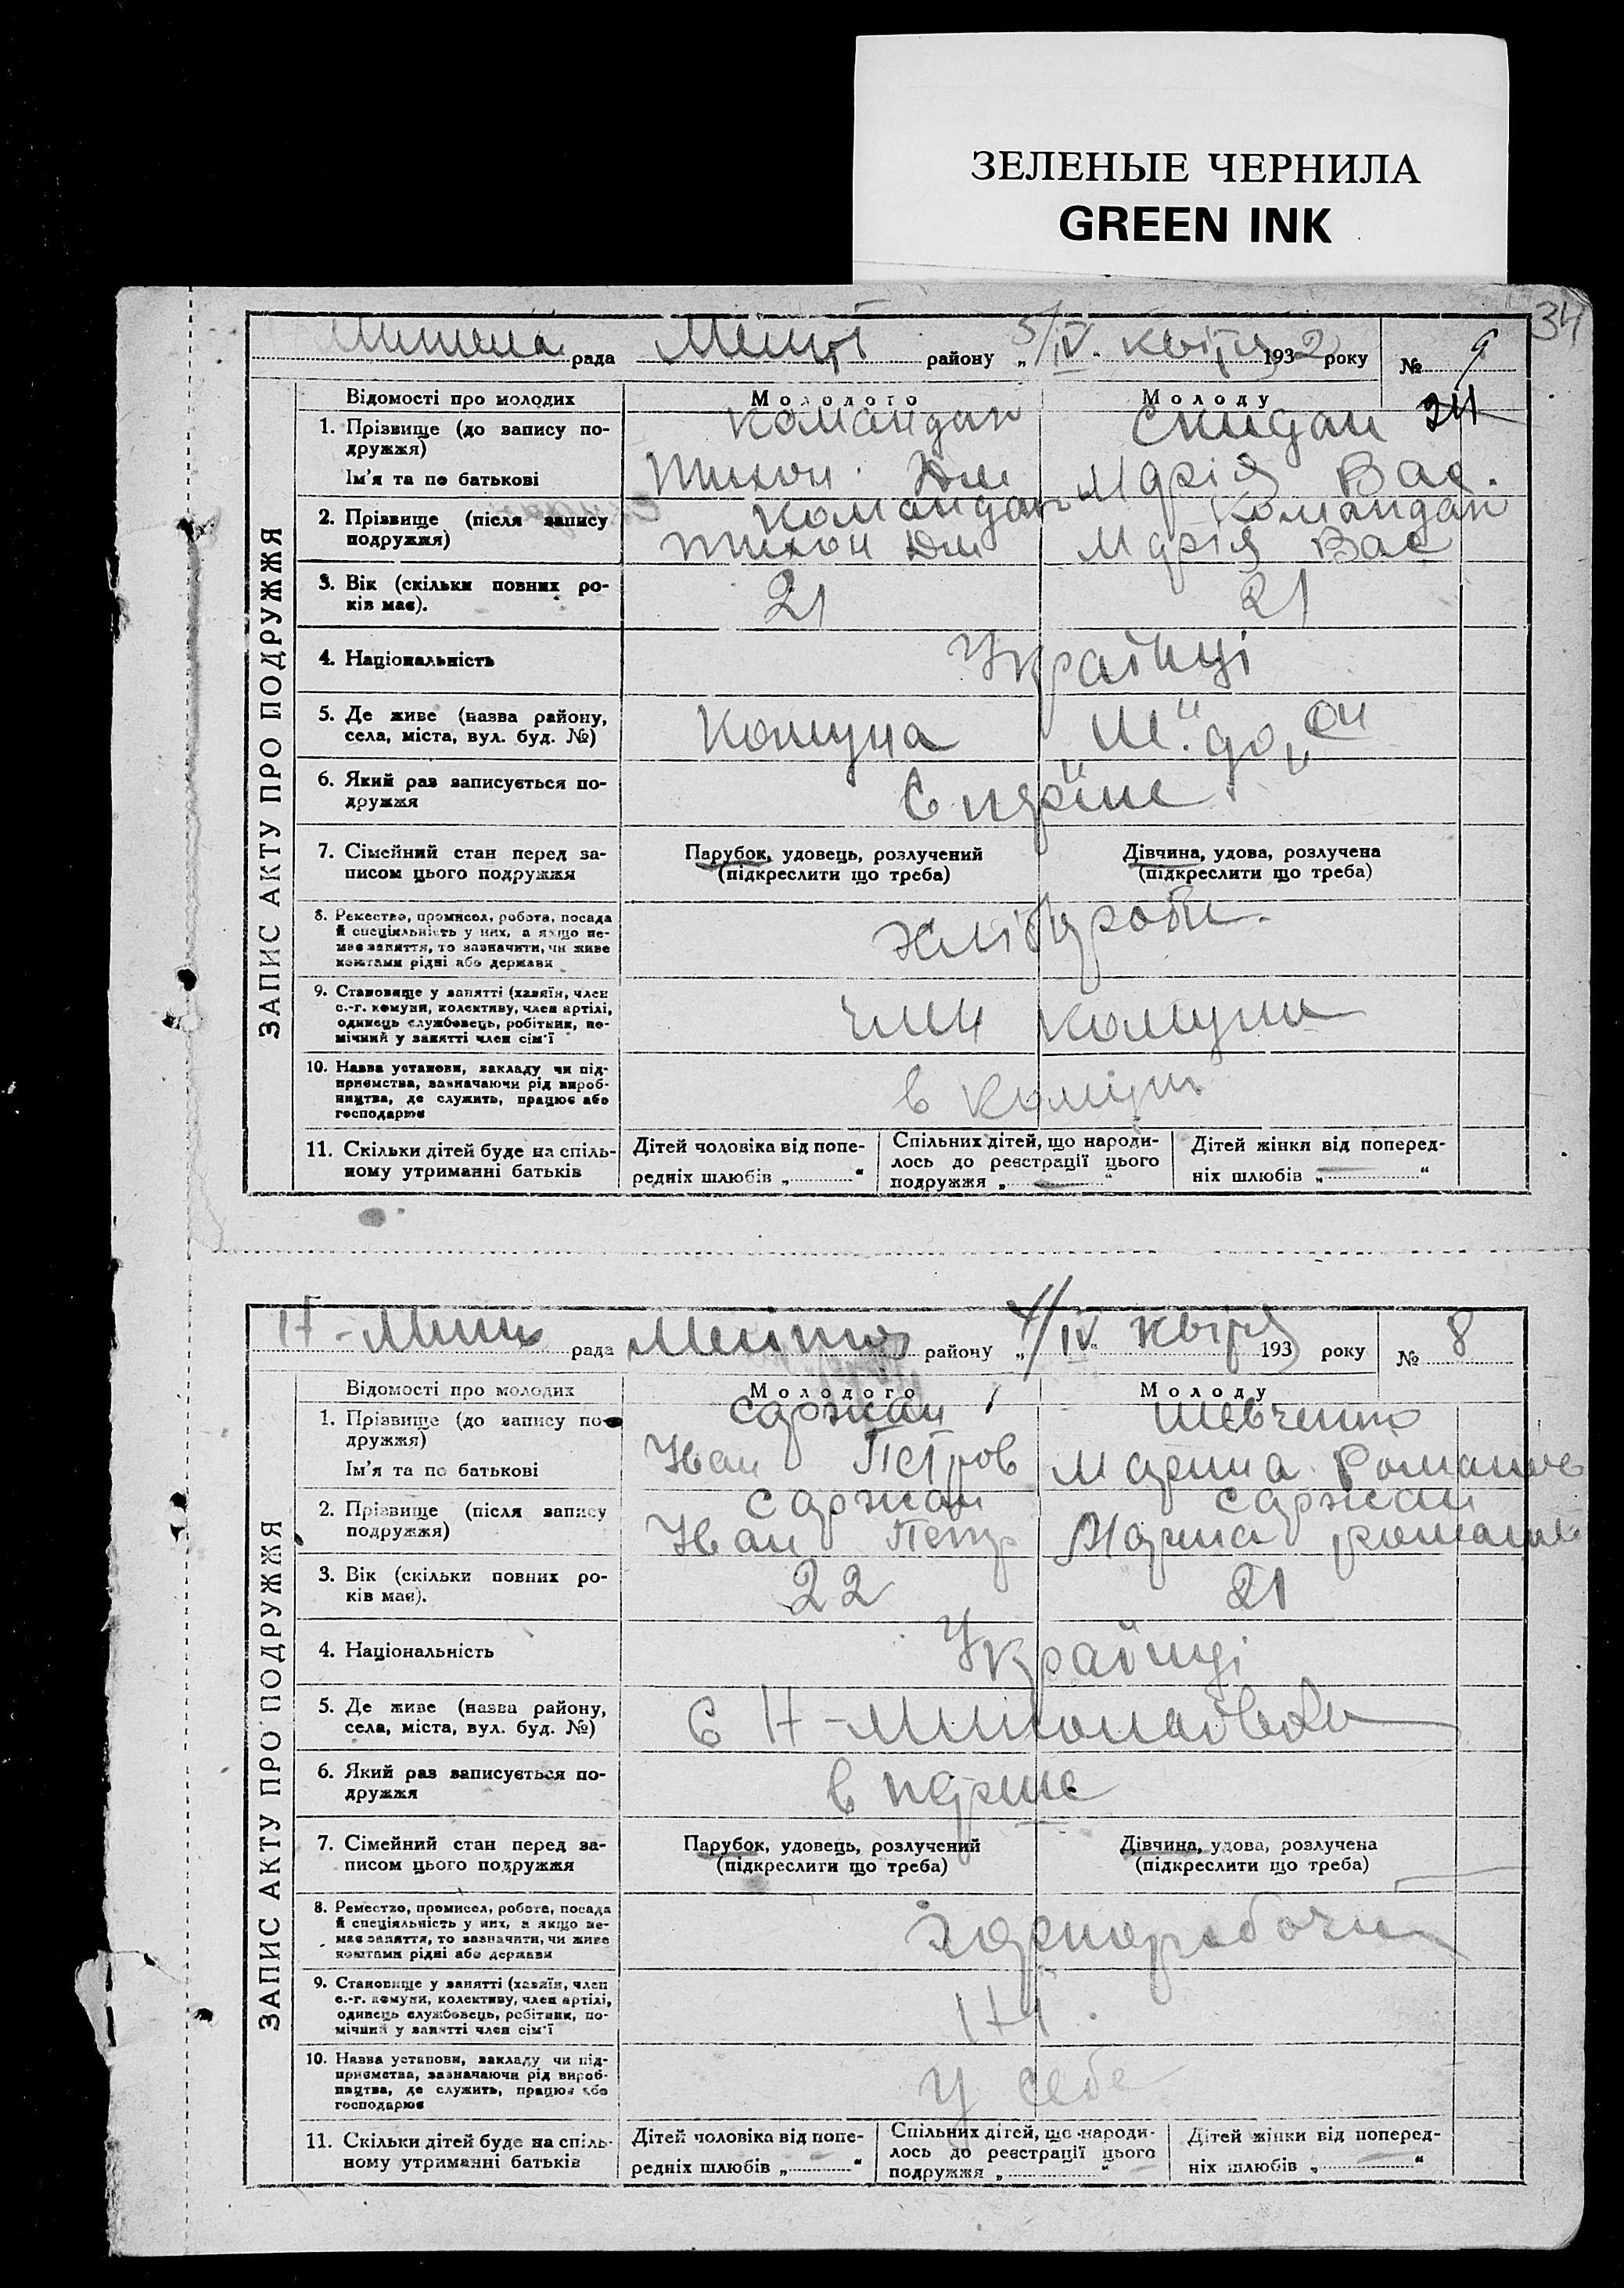 ЗЕЛЕНЫЕ ЧЕРНИЛА
GREEN INK
34
рада району „5/IV“ квітня 1932 року № 9
24
ЗАПИС АКТУ ПРО ПОДРУЖЖЯ
Відомості про молодих Молодого Молоду
1. Прізвище (до запису по-
дружжя)
Командан Скидан
Ім'я та по батькові Тихон Дм Марія Вас.
2. Прізвище (після запису
подружжя)
Командан Командан
Тихон Дм Марія Вас
3. Вік (скільки повних ро-
ків має).
21 21
4. Національність Українці
5. Де живе (назва району,
села, міста, вул. буд. №)
Комуна
6. Який раз записується по-
дружжя
в перше
7. Сімейний стан перед за-
писом цього подружжя
Парубок, удовець, розлучений
(підкреслити що треба)
Дівчина, удова, розлучена
(підкреслити що треба)
8. Ремество, промисел, робота, посада
й спеціяльність у них, а якщо не-
має заняття, то зазначити, чи живе
коштами рідні або держави
хлібороби.
9. Становище у занятті (хазяїн, член
с.-г. комуни, колективу, член артілі,
одинець службовець, робітник, по-
мічний у занятті член сім'ї
член комуни
10. Назва установи, закладу чи під-
приємства, зазначаючи рід вироб-
ництва, де служить, працює або
господарює
в комуні
11. Скільки дітей буде на спіль-
ному утриманні батьків
Дітей чоловіка від попе-
редніх шлюбів „ “
Спільних дітей, що народи-
лось до реєстрації цього
подружжя „ — “
Дітей жінки від поперед-
ніх шлюбів „ — “
рада району „4/IV“ квітня 193 року № 8
ЗАПИС АКТУ ПРО ПОДРУЖЖЯ
Відомості про молодих Молодого Молоду
1. Прізвище (до запису по-
дружжя)
Саржан Шевченко
Ім'я та по батькові Иван Петров Марина Романов
2. Прізвище (після запису
подружжя)
Саржан Саржан
Иван Петр Марина Романов
3. Вік (скільки повних ро-
ків має).
22 21
4. Національність Українці
5. Де живе (назва району,
села, міста, вул. буд. №)
с Н-Миколаївка
6. Який раз записується по-
дружжя
в перше
7. Сімейний стан перед за-
писом цього подружжя
Парубок, удовець, розлучений
(підкреслити що треба)
Дівчина, удова, розлучена
(підкреслити що треба)
8. Ремество, промисел, робота, посада
й спеціяльність у них, а якщо не-
має заняття, то зазначити, чи живе
коштами рідні або держави
9. Становище у занятті (хазяїн, член
с.-г. комуни, колективу, член артілі,
одинець службовець, робітник, по-
мічний у занятті член сім'ї
Ні.
10. Назва установи, закладу чи під-
приємства, зазначаючи рід вироб-
ництва, де служить, працює або
господарює
у себе
11. Скільки дітей буде на спіль-
ному утриманні батьків
Дітей чоловіка від попе-
редніх шлюбів „ — “
Спільних дітей, що народи-
лось до реєстрації цього
подружжя „ — “
Дітей жінки від поперед-
ніх шлюбів „ — “